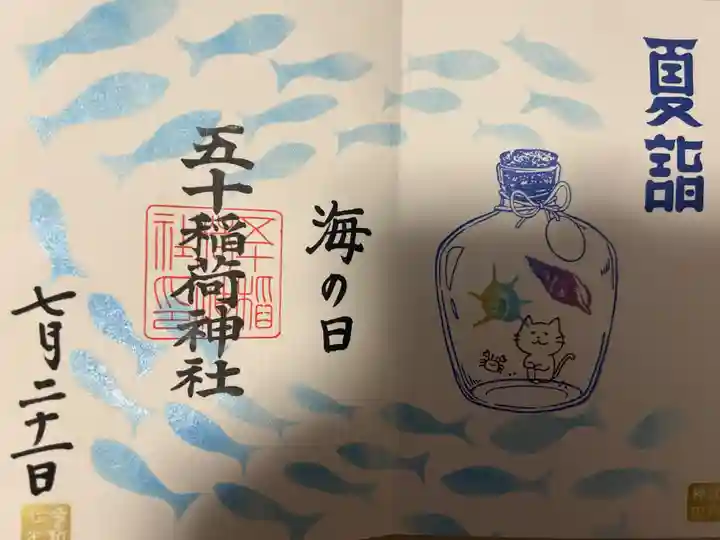 夏詣
海の日
五十稲荷神社
七月二十一日